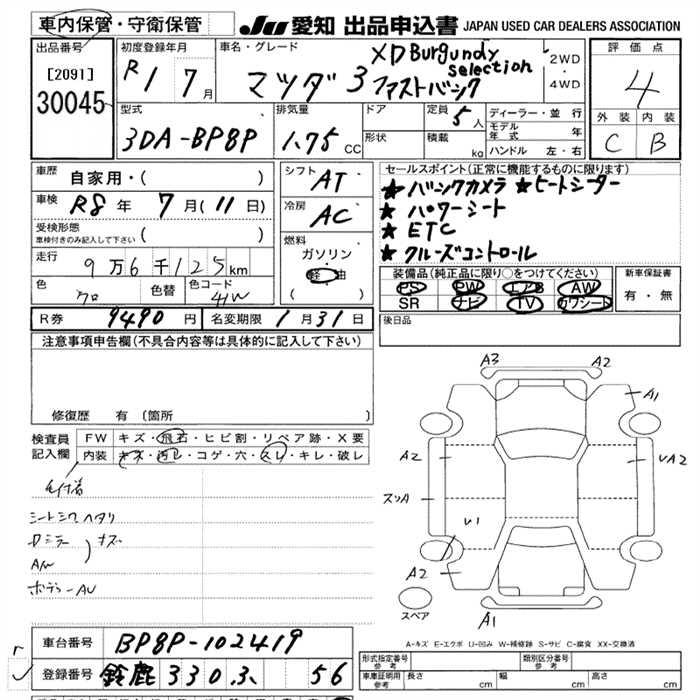 車内保管・守衛保管
JU 愛知 出品申込書 JAPAN USED CAR DEALERS ASSOCIATION
出品番号
[2091]
30045
初度登録年月
R1 7月
車名・グレード
マツダ3 ファストバック
XD Burgundy selection
2WD
・
4WD
評価点
4
外装 内装
C B
型式
3DA-BP8P
排気量
1.75 CC
ドア
形状
定員 5人
積載 kg
ディーラー・並行
モデル年式 年
ハンドル 左・右
車歴 自家用・( )
車検 R8年 7月(11日)
受検形態
車検付きのみ記入して下さい ( )
走行 9万6千125km
色 クロ 色替 色コード 41W
シフト AT
冷房 AC
燃料
ガソリン
軽油
( )
セールスポイント(正常に機能するものに限ります)
★バックカメラ ★ヒートシーター
★パワーシート
★ETC
★クルーズコントロール
装備品(純正品に限り○をつけてください)
PS PW エアB AW
SR ナビ TV カワシート
新車保証書
有・無
R券 9490円 名変期限 1月31日
後日品
注意事項申告欄(不具合内容等は具体的に記入して下さい)
修復歴 有(箇所
検査員記入欄
FW キズ・飛石・ヒビ割・リペア跡・X要
内装 キズ・汚レ・コゲ・穴・スレ・キレ・破レ
シートシワヘタリ
キズ
A3 A2
A1
A2
V A2
スリA
U1
A2
A1
スペア
A-キズ E-エクボ U-凹み W-補修跡 S-サビ C-腐食 XX-交換済
車台番号 BP8P-102419
登録番号 鈴鹿 330 ス 56
形式指定番号 参考
類別区分番号 参考
車庫証明用 参考 長さ cm 幅 cm 高さ cm